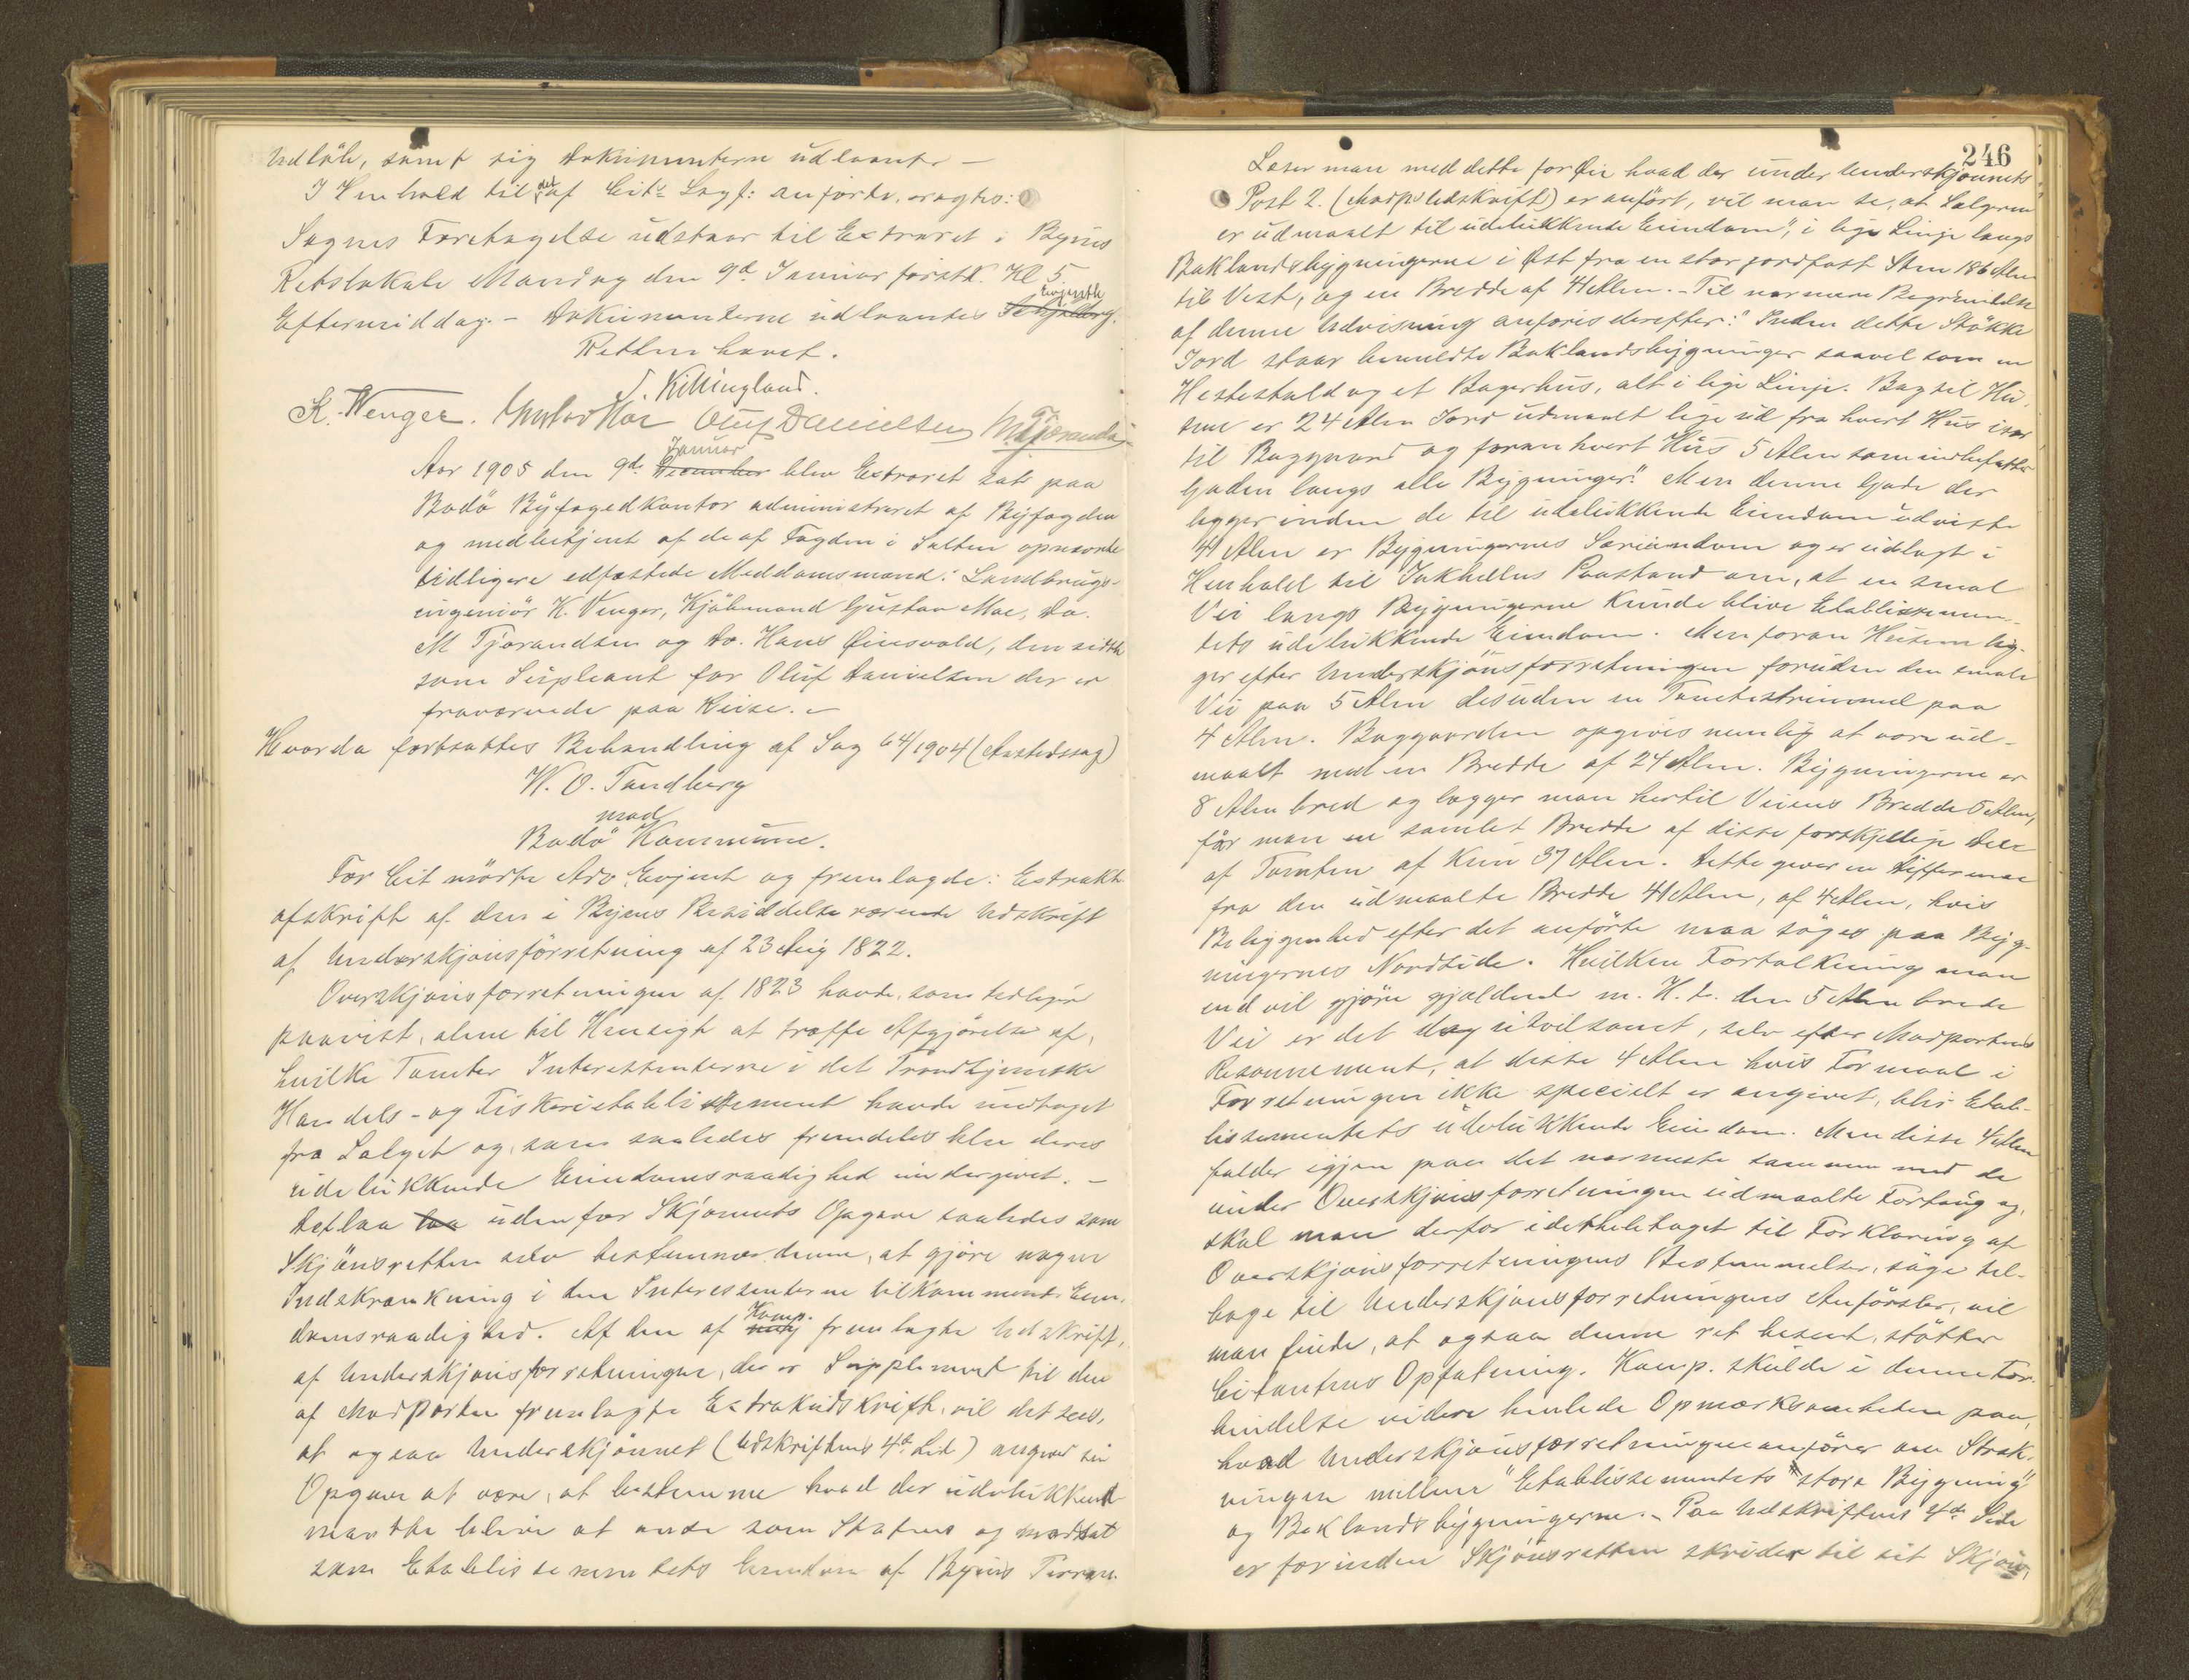 Udløb, samt sig Dokumenterne udlaante —
I Henhold til det af Cit's Sagf: anførte, eragtes:
Sagnes Foretagelse udstaar til Extraret i Byens
Retslokale Mandag den 9d Januar førstk. Kl 5
Eftermiddag. — Dokumenterne udlaantes Evjenth
Retten hævet.
J. Killingland.
K. Wenger. Gustav Moe Oluf Danielsen M Tjørandsen
Aar 1905 den 9de December Januar blev Extraret sat paa
Bodø Byfogedkontor administreret af Byfogden
og medbetjent af de af Fogden i Salten opnævnte
tidligere edfæstede Meddomsmænd: Landbrugs-
ingeniör K. Venger, Kjöbmand Gustav Moe, Do.
M Tjørandsen og Do. Hans Øinsvold, den sidste
som Supleant for Oluf Danielsen der er
fraværende paa Reise. —
Hvorda fortsattes Behandling af Sag 64/1904 (Aastedssag)
W. O. Tandberg
mod
Bodö Kommune.
For Cit mödte Adv Evjent og fremlagde: Extrakt
afskrift af den i Byens Besiddelse værende Udskrift
af Underskjønsförretning af 23 Aug 1822.
Overskjønsforretningen af 1823 havde, som tidligere
paavist, alene til Hensigt at træffe Afgjörelse af,
hvilke Tomter Interessenterne i det Trondhjemske
Handels- og Fiskerietablissement havde undtaget
fra Salget og, som saaledes fremdeles blev deres
udelukkende Eiendomsraadighed undergivet. —
Det laa udenfor Skjønnets Opgave saaledes som
Skjönsretten selv bestemmer denne, at gjøre nogen
Indskrænkning i den Interessenterne tilkommende Eien-
domsraadighed. Af den af Komp. fremlagte Udskrift,
af Underskjønsforretningen, der er Supplement til den
af Modparten fremlagte Extraktudskrift, vil det sees,
at ogsaa Underskjønnet (Udskriftens 4de Sid) angiver sin
Opgave at være, at bestemme hvad der udelukkende
maatte blive at anse som Statens og modsat
som Etablissementets Eiendom af Byens Terræn.
246
Læser man med dette for Øie hvad der under Underskjønnets
Post 2. (Modp's Udskrift) er anført, vil man se, at Sælgeren
er udmaalt til udelukkende Eiendom", i lige Linje langs
Baklandsbygningerne i Øst fra en stor jordfast Sten 186 Alen
til Vest, og en Bredde af 41 Alen. — Til nærmere Begrændelse
af denne Udvisning anføres derefter: "Inden dette Stökke
Jord staar bemeldte Baklandsbygninger saavelsom en
Hestestald og et Bagerhus, alt i lige Linje. Bagtil Hu-
sene er 24 Alen Jord udmaalt lige ud fra hvert Hus især
til Baggaard og foran hvert Hus 5 Alen som indbefatter
Gaden langs alle Bygninger." Men denne Gade der
ligger inden de til udelukkende Eiendom udviste
41 Alen er Bygningernes Særeiendom og er udlagt i
Henhold til Jakhellns Paastand om, at en smal
Vei langs Bygningerne kunde blive Etablissemen-
tets udelukkende Eiendom. Men foran Husene lig-
ger efter Underskjönsforretningen foruden den smale
Vei paa 5 Alen desuden en Tomtestrimmel paa
4 Alen. Baggaarden opgives nemlig at være ud-
maalt med en Bredde af 24 Alen. Bygningerne er
8 Alen bred og lægger man hertil Veiens Bredde 5 Alen,
får man en samlet Bredde af disse forskjellige Dele
af Tomten af kun 37 Alen. Dette giver en Differense
fra den udmaalte Bredde 41 Alen, af 4 Alen, hvis
Beliggenhed efter det anförte maa söges paa Byg-
ningernes Nordside. Hvilken Fortolkning man
end vil gjöre gjældende m. H. t. den 5 Alen brede
Vei er det dog utvilsomt, selv efter Modpartens
Resonnement, at disse 4 Alen hvis Formaal i
Forretningen ikke specielt er angivet, blir Etab-
lissementets udelukkende Eiendom. Men disse 4 Alen
falder igjen paa det nærmeste sammen med de
under Overskjønsforretningen udmaalte Fortaug og,
skal man derfor i det hele taget til Forklaring af
Overskjønsforretningens Bestemmelser, søge til-
bage til Underskjønsforretningens Anførsler, vil
man finde, at ogsaa denne ret beseet, støtter
Citantens Opfatning. Komp. skulde i denne For-
bindelse videre henlede Opmærksomheden paa,
hvad Underskjønsforretningen anfører om Stræk-
ningen mellem "Etablissementets store Bygning"
og Baklandsbygningerne. — Paa Udskriftens 4de Side
er forinden Skjønsretten skrider til sit Skjøn,